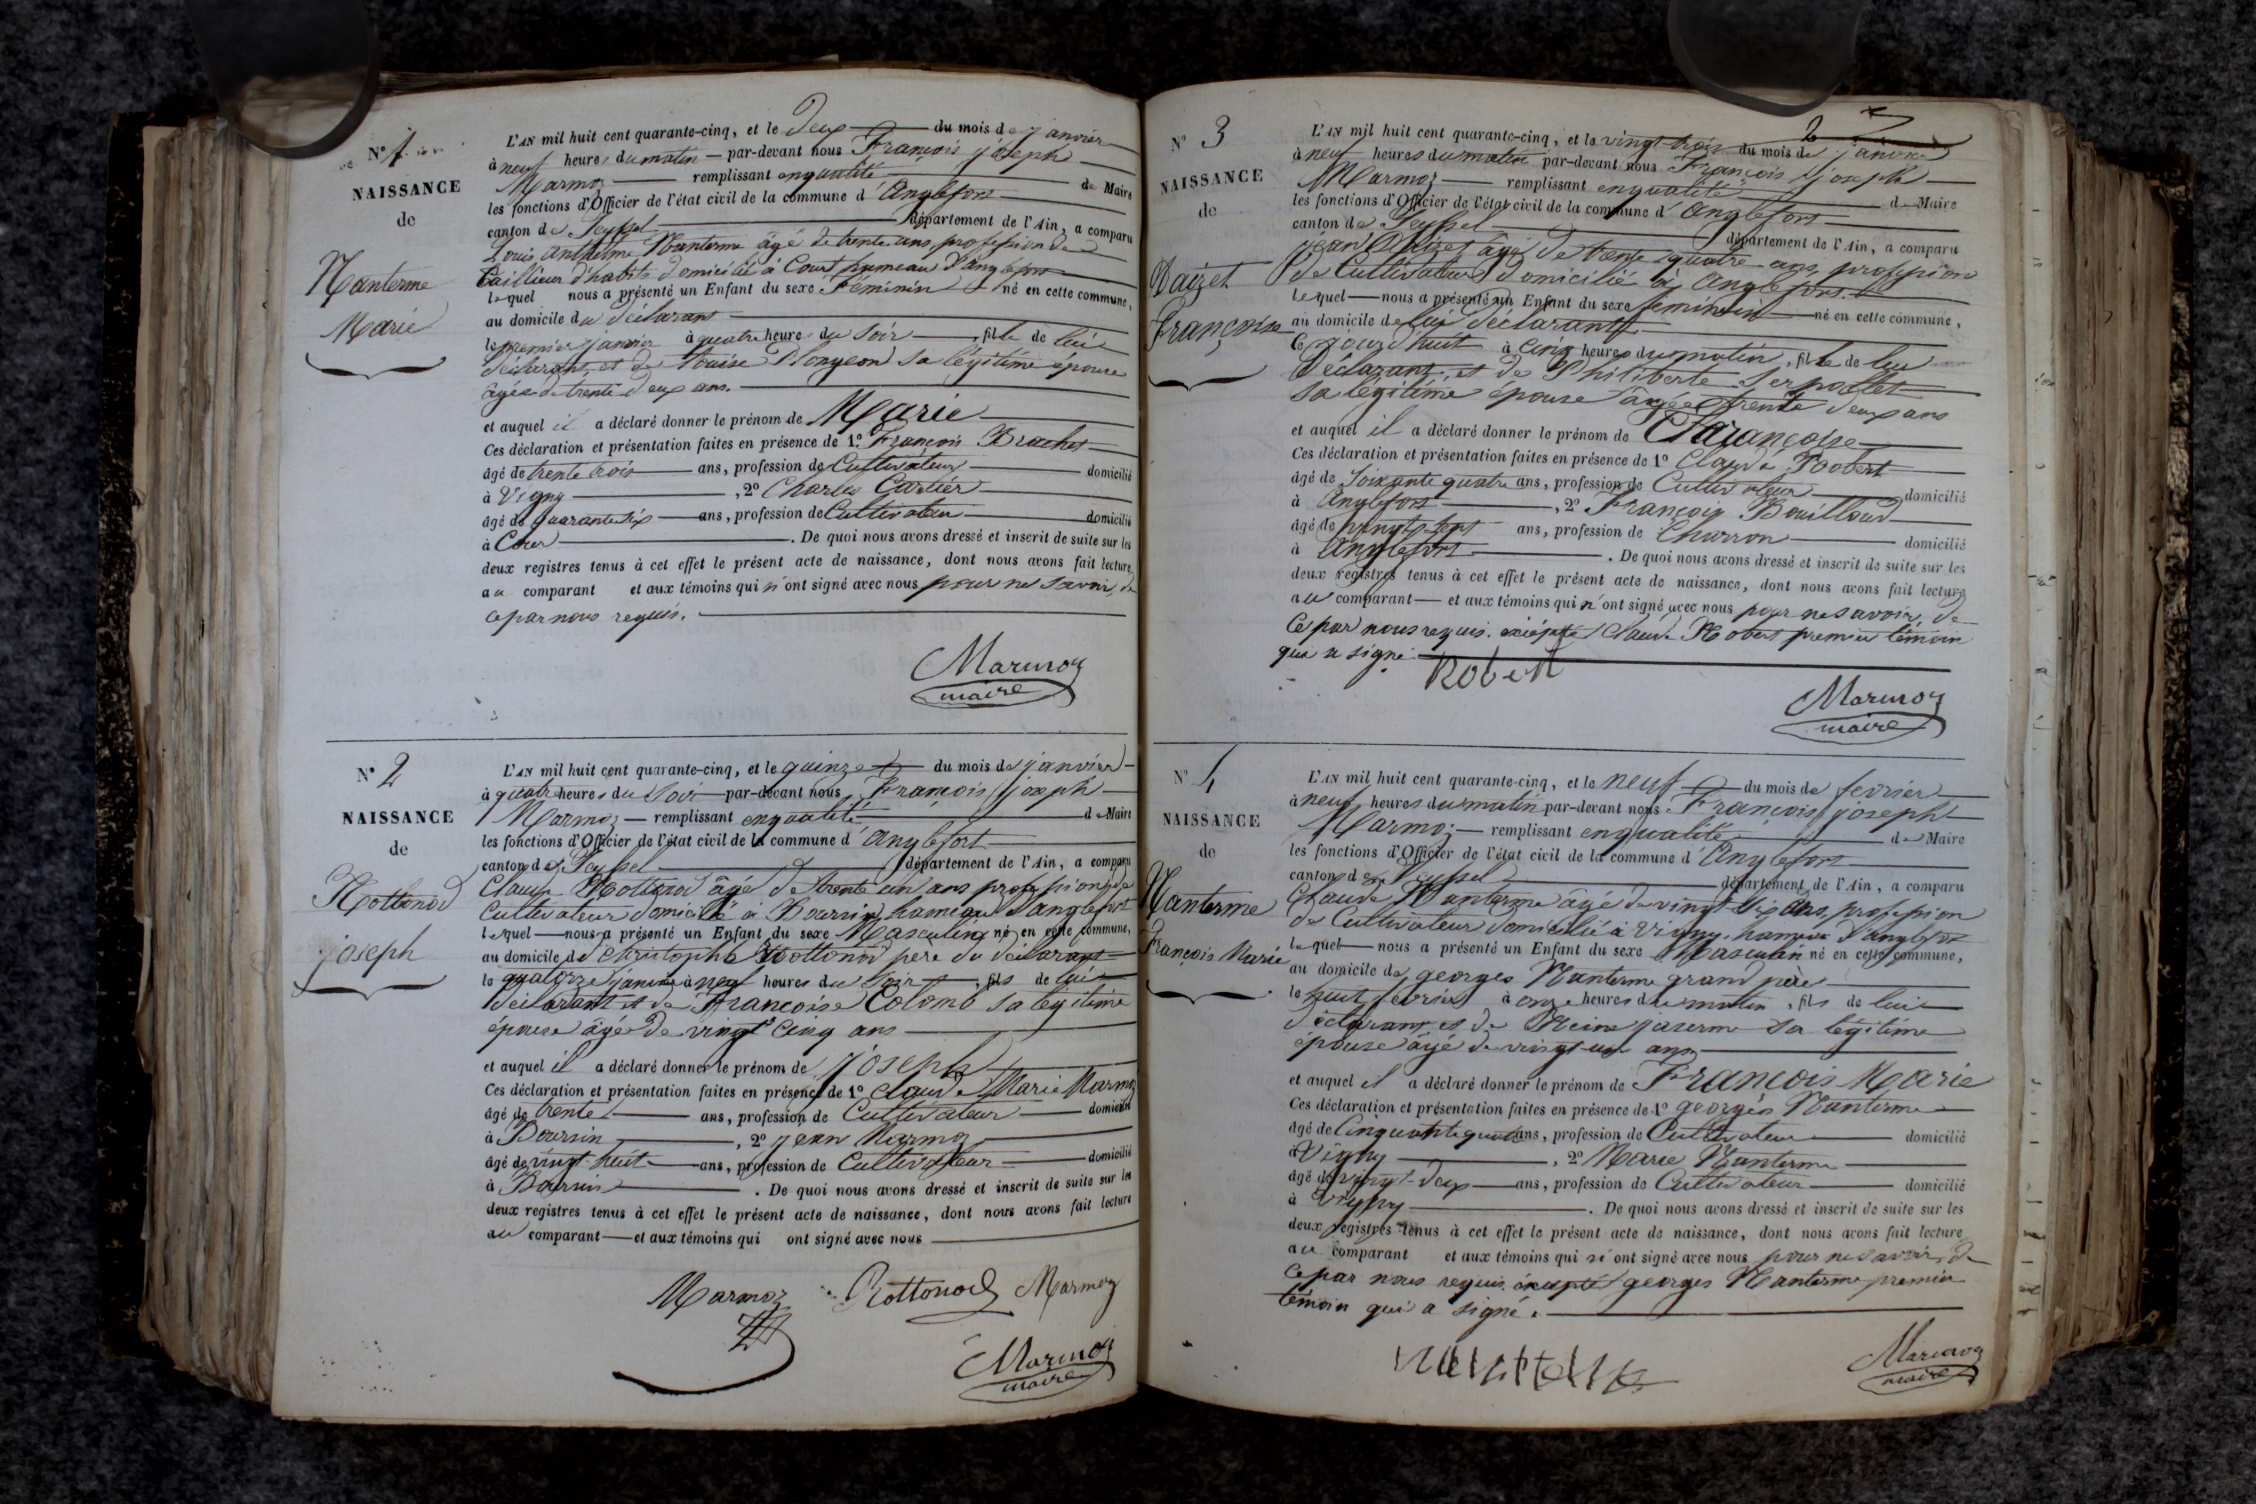 N° 1
NAISSANCE
de
Nanterme
Marie
L'AN mil huit cent quarante-cinq, et le Deux du mois de janvier
à neuf heures du matin par-devant nous François joseph
Marmoz remplissant en qualité de Maire
les fonctions d'Officier de l'état civil de la commune d'Anglefort
canton de Seyssel département de l'Ain, a comparu
Louis Anthelme Nanterme âgé de trente ans, profession de
tailleur d'habits domicilié à Court hameau d'anglefort
lequel nous a présenté un Enfant du sexe Féminin né en cette commune,
au domicile du déclarant
le premier janvier à quatre heures du soir, fille de lui
déclarant, et de Louise sa légitime épouse
âgée de trente deux ans.
et auquel il a déclaré donner le prénom de Marie
Ces déclaration et présentation faites en présence de 1° François Brachet
âgé de trente trois ans, profession de Cultivateur domicilié
à Vigny, 2° Charles Cartier
âgé de quarante six ans, profession de Cultivateur domicilié
à Cour. De quoi nous avons dressé et inscrit de suite sur les
deux registres tenus à cet effet le présent acte de naissance, dont nous avons fait lecture
au comparant et aux témoins qui n'ont signé avec nous pour ne savoir, de
ce par nous requis.
Marmoz
maire
N° 2
NAISSANCE
de
Rottonod
joseph
L'AN mil huit cent quarante-cinq, et le quinze du mois de janvier
à quatre heures du soir par-devant nous François joseph
Marmoz remplissant en qualité de Maire
les fonctions d'Officier de l'état civil de la commune d'Anglefort
canton de Seyssel département de l'Ain, a comparu
Claude Rottonod âgé de trente un ans profession de
Cultivateur domicilié à Boursin hameau d'anglefort
lequel nous a présenté un Enfant du sexe Masculin né en cette commune,
au domicile de Christophe Rottonod père du déclarant
le quatorze janvier à neuf heures du soir, fils de lui
déclarant et de Françoise Colomb sa légitime
épouse âgée de vingt cinq ans
et auquel il a déclaré donner le prénom de joseph
Ces déclaration et présentation faites en présence de 1° Claude Marie Marmoz
âgé de trente ans, profession de Cultivateur domicilié
à Boursin, 2° jean Marmoz
âgé de vingt huit ans, profession de Cultivateur domicilié
à Boursin. De quoi nous avons dressé et inscrit de suite sur les
deux registres tenus à cet effet le présent acte de naissance, dont nous avons fait lecture
au comparant et aux témoins qui ont signé avec nous
Marmoz Rottonod Marmoz
Marmoz
maire
2
N° 3
NAISSANCE
de
Daizet
Françoise
L'AN mil huit cent quarante-cinq, et le vingt trois du mois de janvier
à neuf heures du matin par-devant nous François joseph
Marmoz remplissant en qualité de Maire
les fonctions d'Officier de l'état civil de la commune d'Anglefort
canton de Seyssel département de l'Ain, a comparu
jean Daizet âgé de trente quatre ans, profession
de Cultivateur domicilié à Anglefort
lequel nous a présenté un Enfant du sexe féminin né en cette commune,
au domicile de lui déclarant
le jourd'huit à cinq heures du matin, fille de lui
Déclarant, et de Philiberte Serpollet
sa légitime épouse âgée trente deux ans
et auquel il a déclaré donner le prénom de Françoise
Ces déclaration et présentation faites en présence de 1° Claude Robert
âgé de soixante quatre ans, profession de Cultivateur domicilié
à Anglefort, 2° François Bouilloud
âgé de vingt sept ans, profession de Charron domicilié
à Anglefort. De quoi nous avons dressé et inscrit de suite sur les
deux registres tenus à cet effet le présent acte de naissance, dont nous avons fait lecture
au comparant et aux témoins qui n'ont signé avec nous pour ne savoir, de
ce par nous requis. excepté Claude Robert premier témoin
qui a signé.
Robert
Marmoz
maire
N° 4
NAISSANCE
de
Nanterme
François Marie
L'AN mil huit cent quarante-cinq, et le neuf du mois de fevrier
à neuf heures du matin par-devant nous François joseph
Marmoz remplissant en qualité de Maire
les fonctions d'Officier de l'état civil de la commune d'Anglefort
canton de Seyssel département de l'Ain, a comparu
Claude Nanterme âgé de vingt six ans, profession
de Cultivateur domicilié à Vigny hameau d'anglefort
lequel nous a présenté un Enfant du sexe Masculin né en cette commune,
au domicile de georges Nanterme grand père
le huit fevrier à onze heures du matin, fils de lui
déclarant, et de Reine sa légitime
épouse âgé de vingt un ans
et auquel il a déclaré donner le prénom de François Marie
Ces déclaration et présentation faites en présence de 1° georges Nanterme
âgé de Cinquante quatre ans, profession de Cultivateur domicilié
à Vigny, 2° Marie Nanterme
âgé de vingt-deux ans, profession de Cultivateur domicilié
à Vigny. De quoi nous avons dressé et inscrit de suite sur les
deux registres tenus à cet effet le présent acte de naissance, dont nous avons fait lecture
au comparant et aux témoins qui n'ont signé avec nous pour ne savoir, de
ce par nous requis. excepté georges Nanterme premier
témoin qui a signé.
Marmoz
maire